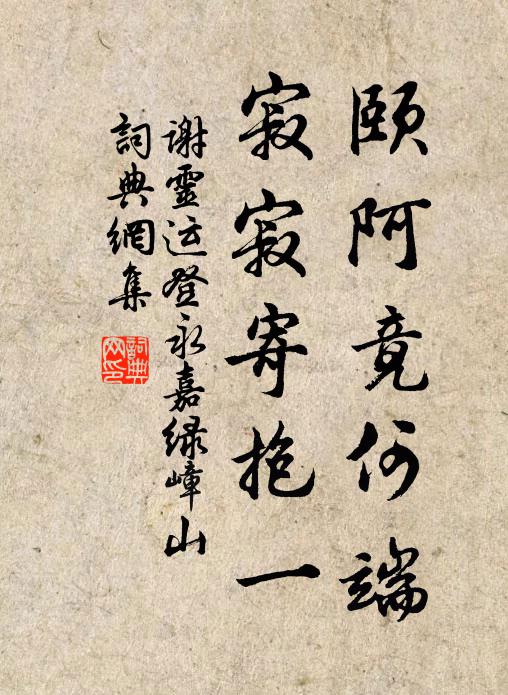 頤阿竟何端
寂寂寄抱一
謝靈运登永嘉绿嶂山
詞典網集
詞典網印